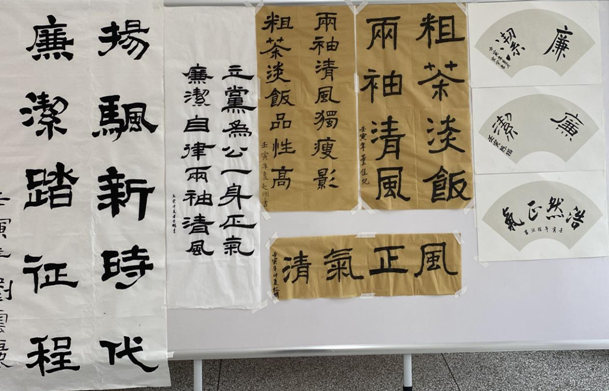 揚颿新時代
廉潔踏征程
壬寅年劉雲
立黨為公一身正氣
廉潔自律兩袖清風
兩袖清風獨瘦影
粗茶淡飯品性高
粗茶淡飯
兩袖清風
風正氣清
廉潔
廉潔
浩然正氣